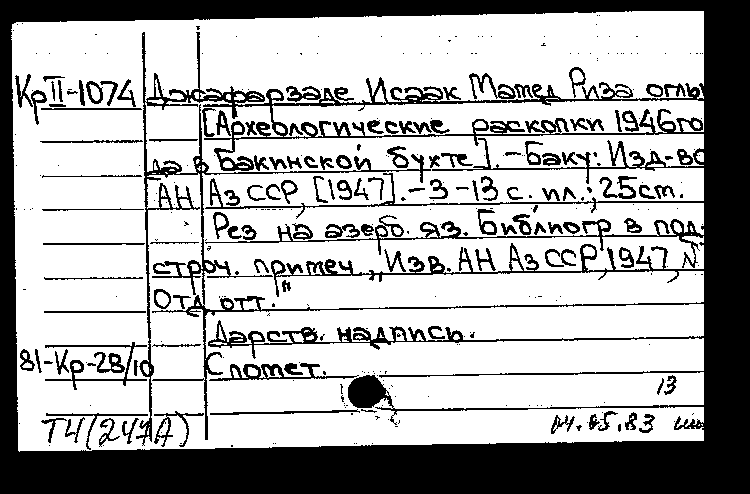 КрII-1074 Джафарзаде, Исаак Мамед Риза оглы
[Археологические раскопки 1946го
да в Бакинской бухте].-Баку: Изд-во
АН АзССР, [1947].-3-13 с. ил.; 25см.
Рез на азерб. яз. Библиогр в под-
строч. примеч. „Изв. АН АзССР, 1947, №
Отд. отт."
Дарств. надпись.
81-Кр-28/10 С помет.
13
Т4(247А) 04.05.83